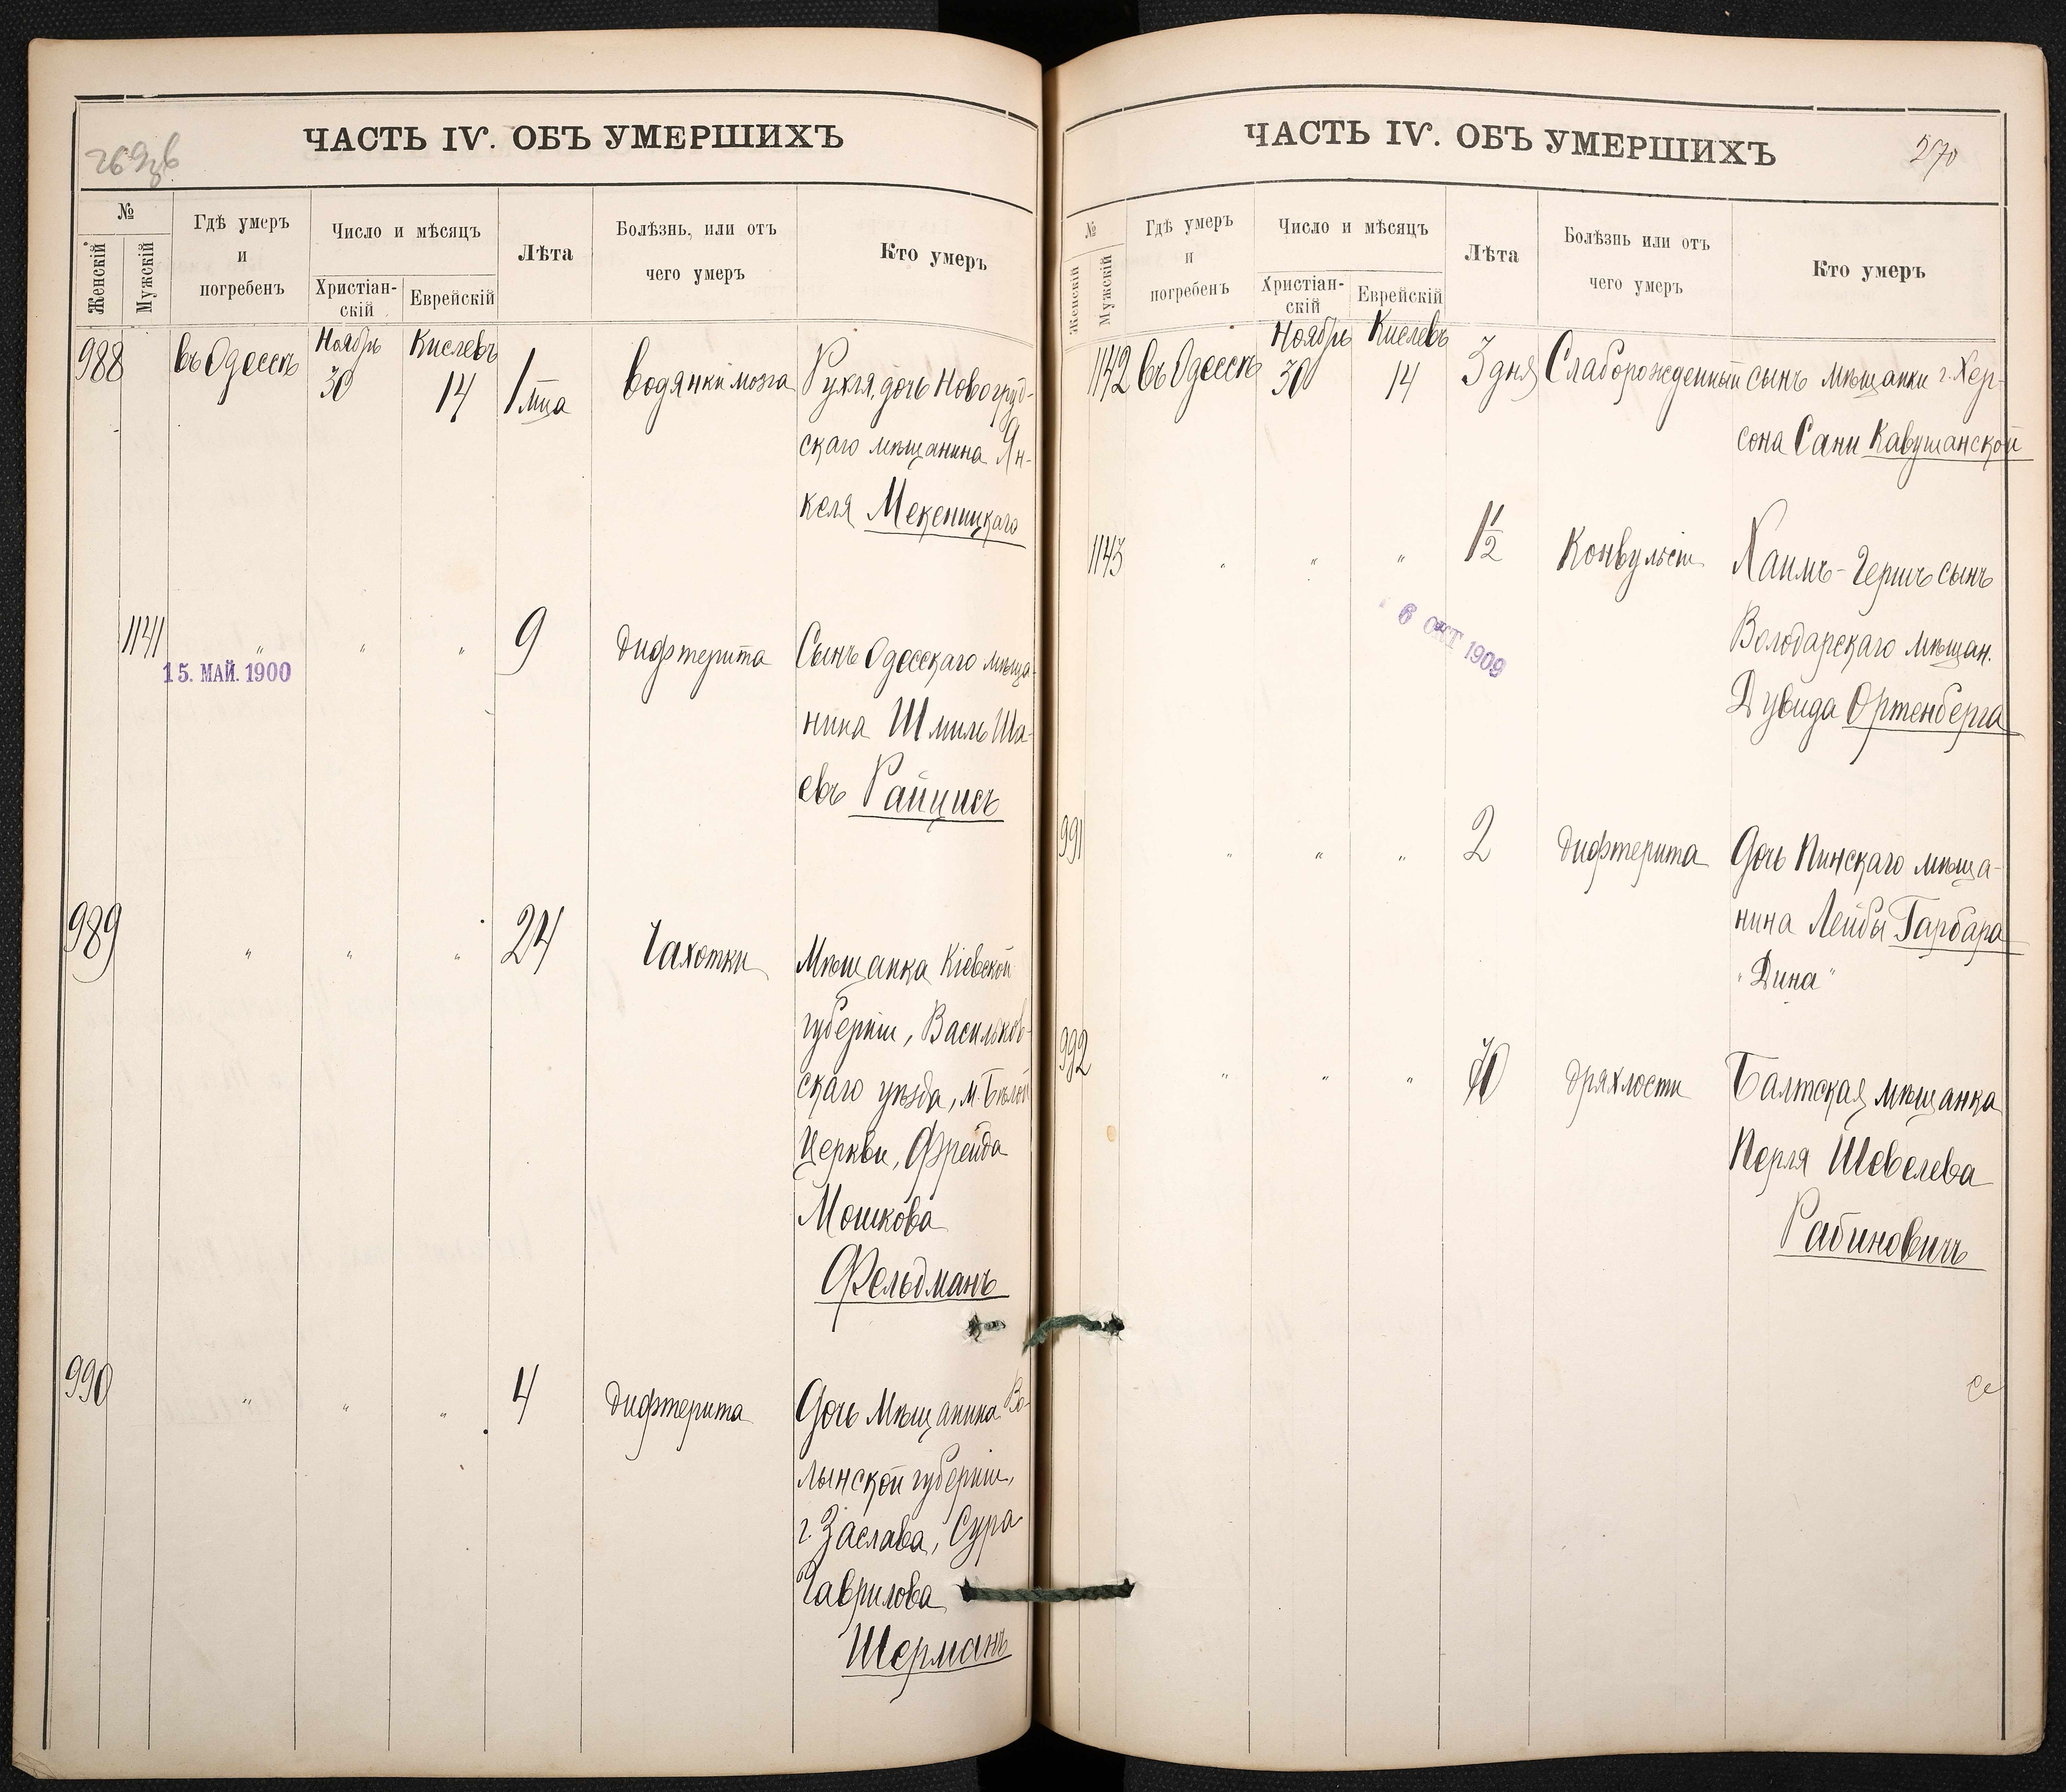 ЧАСТЬ IV. ОБЪ УМЕРШИХЪ
№
Женскій
Мужскій
Гдѣ умеръ
и
погребенъ
Число и мѣсяцъ
Христіан-
скій
Еврейскій
Лѣта
Болѣзнь, или отъ
чего умеръ
Кто умеръ
988 въ Одессѣ Ноябрь 30 Кислевъ 14 1 мца водянки мозга Рухля, дочь Новогруд-
скаго мѣщанина Ян-
келя Мекеницкаго
1141 " " " 9 дифтерита Сынъ Одесскаго мѣща-
15. МАЙ. 1900
нина Шмиль Ша-
евъ Райцисъ
989 " " " 24 Чахотки Мѣщанка Кіевской
губерніи, Васильков-
скаго уѣзда, м. Бѣлой
Церкви, Фрейда
Мошкова
Фельдманъ
990 " " " 4 дифтерита Дочь Мѣщанина Во-
лынской губерніи,
г. Заслава, Сура
Гаврилова
Шерманъ
ЧАСТЬ IV. ОБЪ УМЕРШИХЪ
270
№
Женскій
Мужскій
Гдѣ умеръ
и
погребенъ
Число и мѣсяцъ
Христіан-
скій
Еврейскій
Лѣта
Болѣзнь или отъ
чего умеръ
Кто умеръ
1142 въ Одессѣ Ноябрь 30 Кислевъ 14 3 дня Слаборожденный сынъ мѣщанки г. Хер-
сона Сани Кавушанской
1143 " " " 1½ Конвульсіи Хаимъ-Гершъ сынъ
6 ОКТ 1909
Володарскаго мѣщан.
Дувида Ортенберга
991 " " " 2 дифтерита Дочь Пинскаго мѣща-
нина Лейбы Гарбара
"Дина"
992 " " " 70 дряхлости Балтская мѣщанка
Перля Шевелева
Рабиновичъ